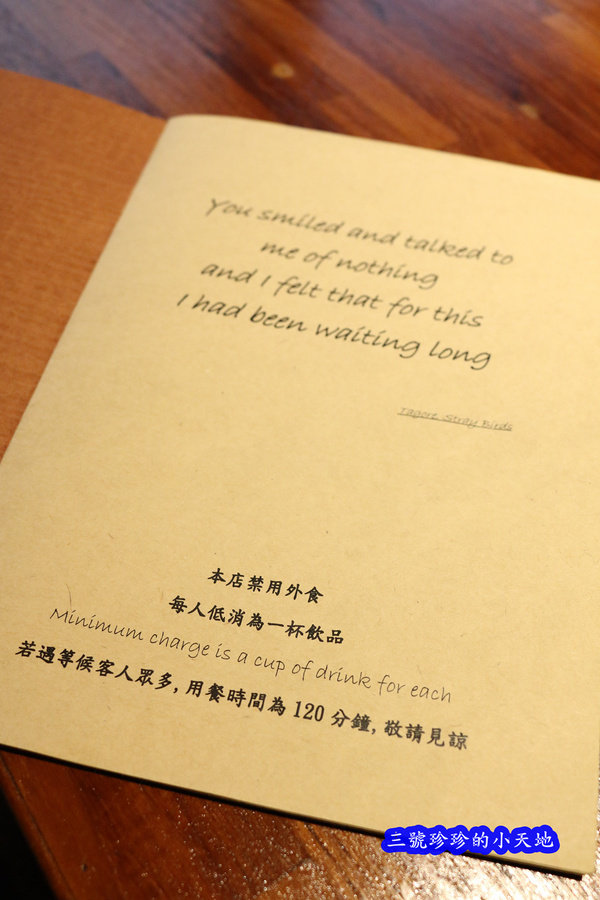 You smiled and talked to
me of nothing
and I felt that for this
I had been waiting long
Tagore Stray Birds
本店禁用外食
每人低消為一杯飲品
Minimum charge is a cup of drink for each
若遇等候客人眾多,用餐時間為 120 分鐘,敬請見諒
三號珍珍的小天地